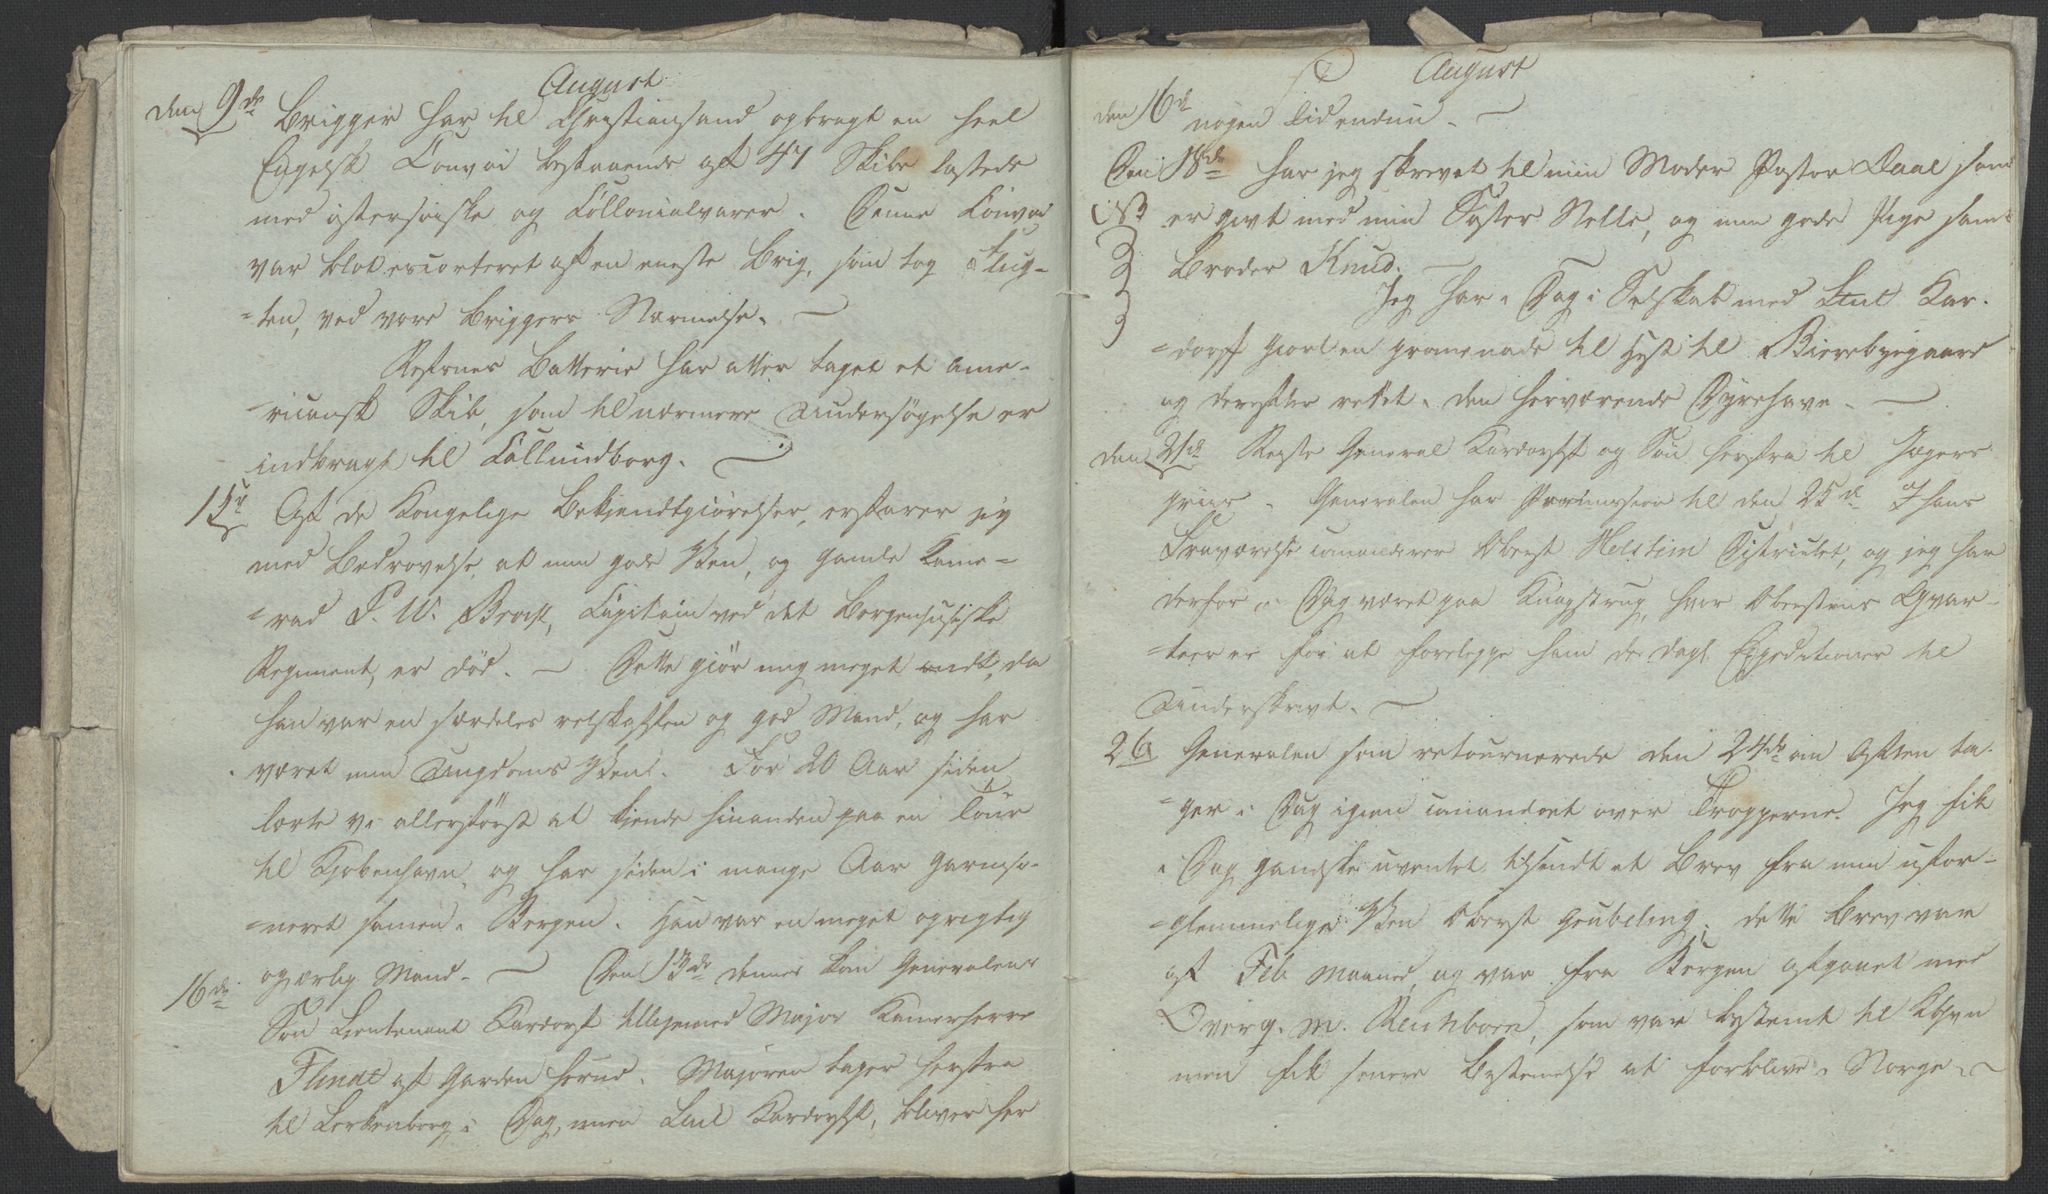 August
den 9de Brigger har til Christiansand opbragt en heel
Engelsk Convoi bestaaende af 47 Skibe lastede
med østersøiske og Collonialvarer. Denne Convoi
var blot escorteret af en eneste Brig, som tog Flug-
=ten, ved vore Briggers Nærmelse. —
Refsnes Batterie har atter taget et ame-
=ricansk Skib, som til nærmere Undersøgelse er
indbragt til Callundborg. —
15de Af de Kongelige Bekjendtgiørelser, erfarer jeg
med Bedrøvelse at min gode Ven, og gamle Kame-
=rad P. W. Brock, Capitain ved det Bergenhusiske
Regiment, er død. — Dette giør mig meget ondt, da
han var en særdeles retskaffen og god Mand, og har
været min Ungdoms Ven. For 20 Aar siden
lærte vi allerførst at kjende hinanden paa en Tour
til Kjøbenhavn, og har siden i mange Aar Garniso-
=neret samen i Bergen. Han var en meget oprigtig
og ærlig Mand. —
16de Den 13de dennes kom Generalens
Søn Lieutenant Kardorff tilligemed Major Kamerherre
Flindt af Garden herud. Majoren tager herfra
til Lerkenborg i Dag, men Lieut Kardorff, bliver her
August
den 16de nogen Tid endnu. —
Den 18de har jeg skrevet til min Moder Pastor Daae som
er givt med min Søster Nelle, og min gode Pige samt
Broder Knud. —
Jeg har i Dag i Selskab med Lieut Kar-
=dorff giort en promenade til Hest til Bierebyegaard
og derefter rettet i den herværende Dyrehave. —
den 21de Reiste General Kardorff og Søn herfra til Jægers
priis. Generalen har Permission til den 25de I hans
Fraværelse comanderer Oberst Holstein Districtet, og jeg har
derfor i Dag været paa Knapstrup, hvor Oberstens Qvar-
=teer er for at forelegge ham de dagl. Expeditioner til
Underskrivt. —
26 Generalen som retournerede den 24de om Aften ta-
=ger i Dag igien comandoet over Tropperne. Jeg fik
i Dag gandske uventet tilsendt et Brev fra min ufor-
=glemmelige Ven Oberst Geubeling; dette Brev var
af Feb Maaned, og var fra Bergen afgaaet med
Overq. m. Reichborn, som var bestemt til Kbhvn
men fik senere Bestemelse at forblive i Norge. —